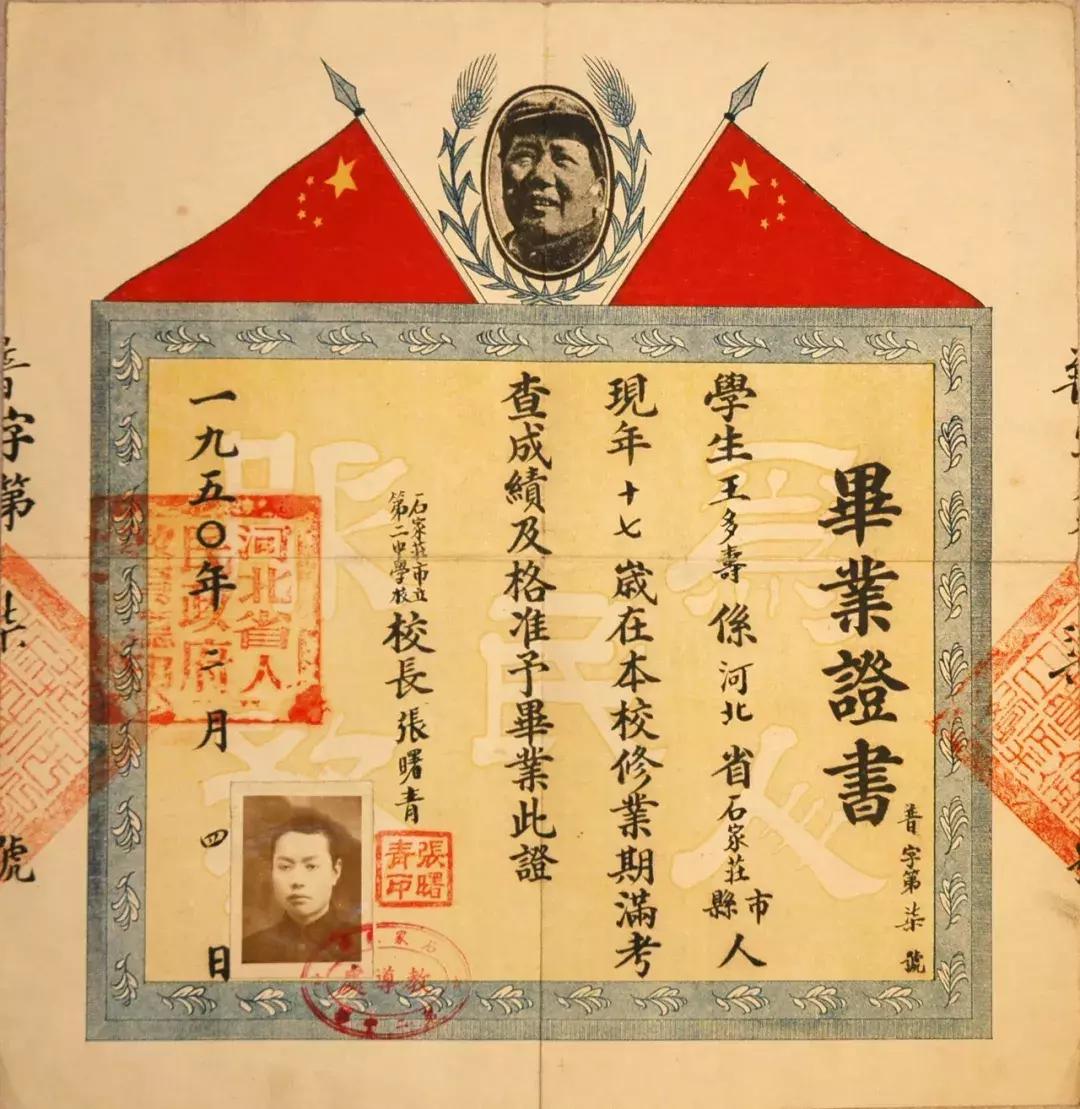 畢業證書
普字第柒號
學生王多壽係河北省石家莊市縣人
現年十七歲在本校修業期滿考
查成績及格准予畢業此證
石家莊市立
第二中學校
校長張曙青
張曙青印
一九五〇年二月四日
河北省人
民政府
教導處
為人民服務
字第柒號